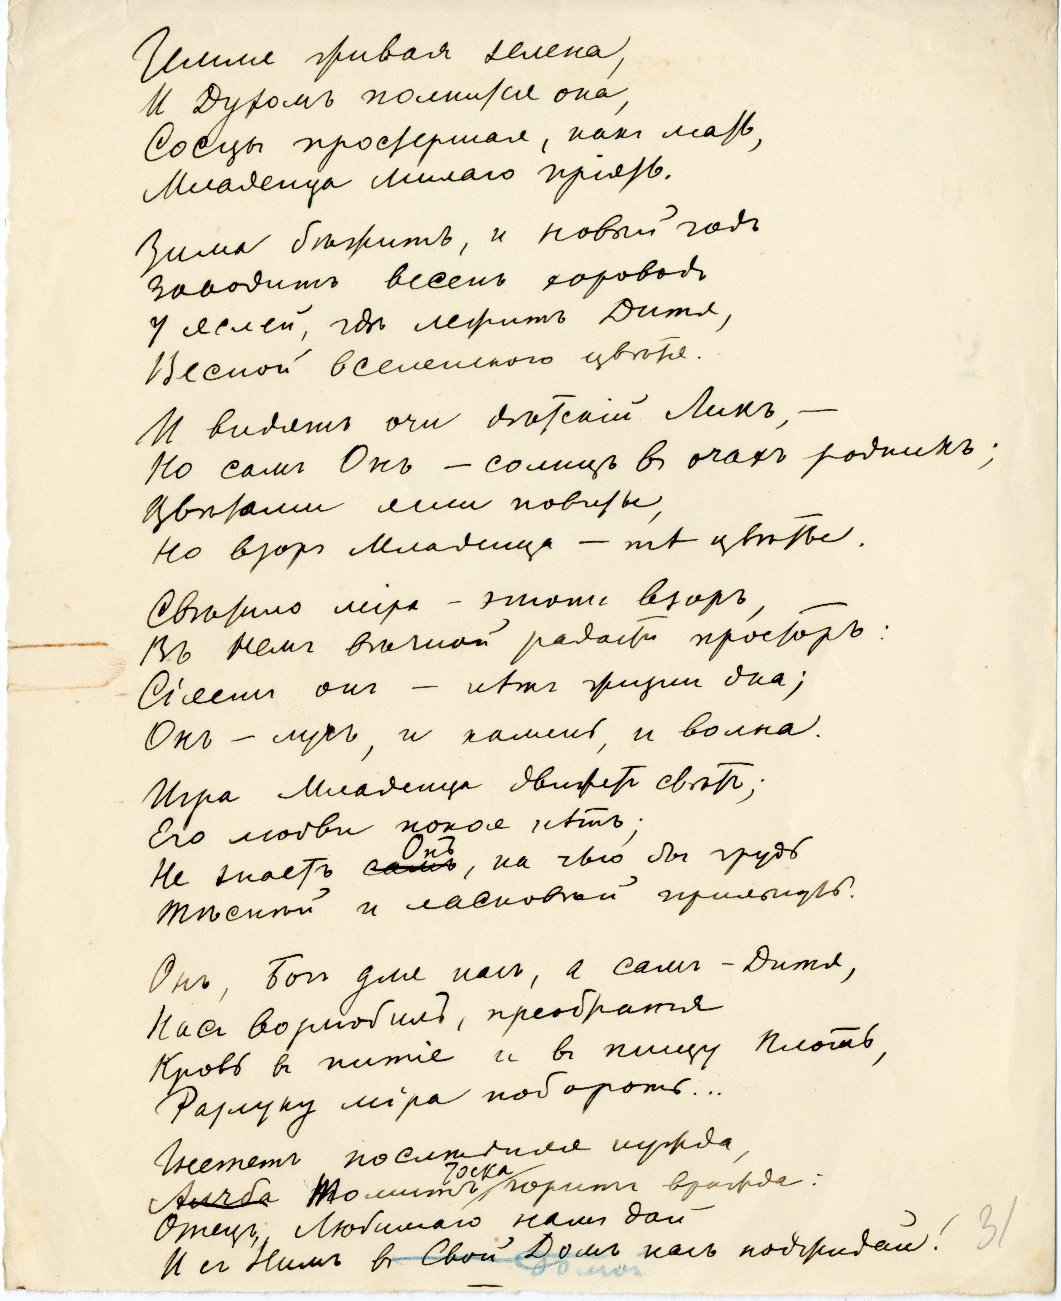 Земля живая зелена,
И Духомъ полнится она,
Сосцы простершая, какъ мать,
Младенца милаго пріять.
Зима бѣжитъ, и новый годъ
Заводитъ весенъ хороводъ
У яслей, гдѣ лежитъ Дитя,
Весной вселенскою цвѣтя.
И видятъ очи дѣтскій Ликъ, –
Но самъ Онъ – солнцъ въ очахъ родникъ;
Цвѣтами ясли повиты,
Но взоръ Младенца – тѣ цвѣты.
Свѣтило міра – этотъ взоръ,
Въ Немъ вѣчной радости просторъ:
Сіяетъ онъ – нѣтъ жизни дна;
Онъ – лучъ, и камень, и волна.
Игра Младенца движетъ свѣтъ;
Его любви покоя нѣтъ;
Онъ
Не знаетъ самъ, на чью бы грудь
Тѣснѣй и ласковѣй прильнуть.
Онъ, Богъ для насъ, а самъ – Дитя,
Насъ возлюбилъ, преобратя
Кровь въ питіе и въ пищу Плоть,
Разлуку міра побороть...
Гнететъ послѣдняя нужда,
Тоска
Алчба Томитъ горитъ вражда:
Отецъ, Любимаго намъ дай
И съ Нимъ въ Свой Домъ насъ поджидай!
домой
31